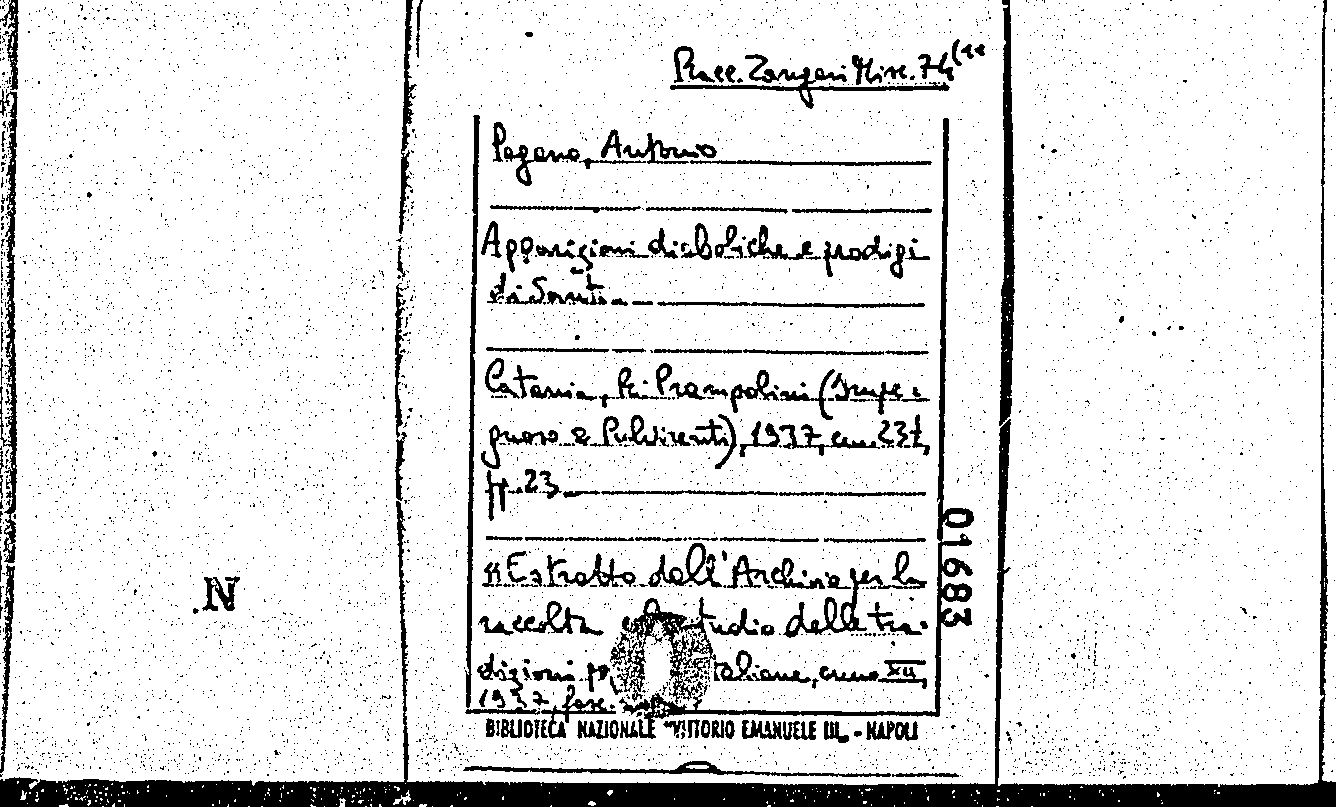 Racc. Zangari Misc. 74(11
Pagano, Antonio
Apparizioni diaboliche e prodigi
di Santi
Catania, Prampolini (Impe-
gnoso & Pulvirenti), 1937, cm. 23½,
pp. 23
"Estratto dall'Archivio per la
raccolta e lo studio delle tra-
dizioni po italiane, anno XII,
1937, fasc.
BIBLIOTECA NAZIONALE "VITTORIO EMANUELE III" - NAPOLI
01683
N